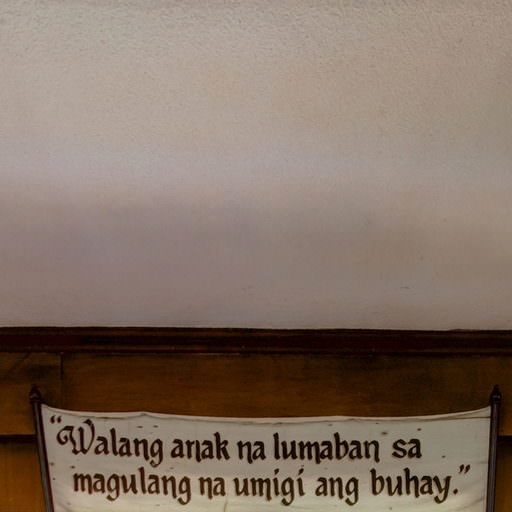 “Walang anak na lumaban sa
magulang na umigi ang buhay.”